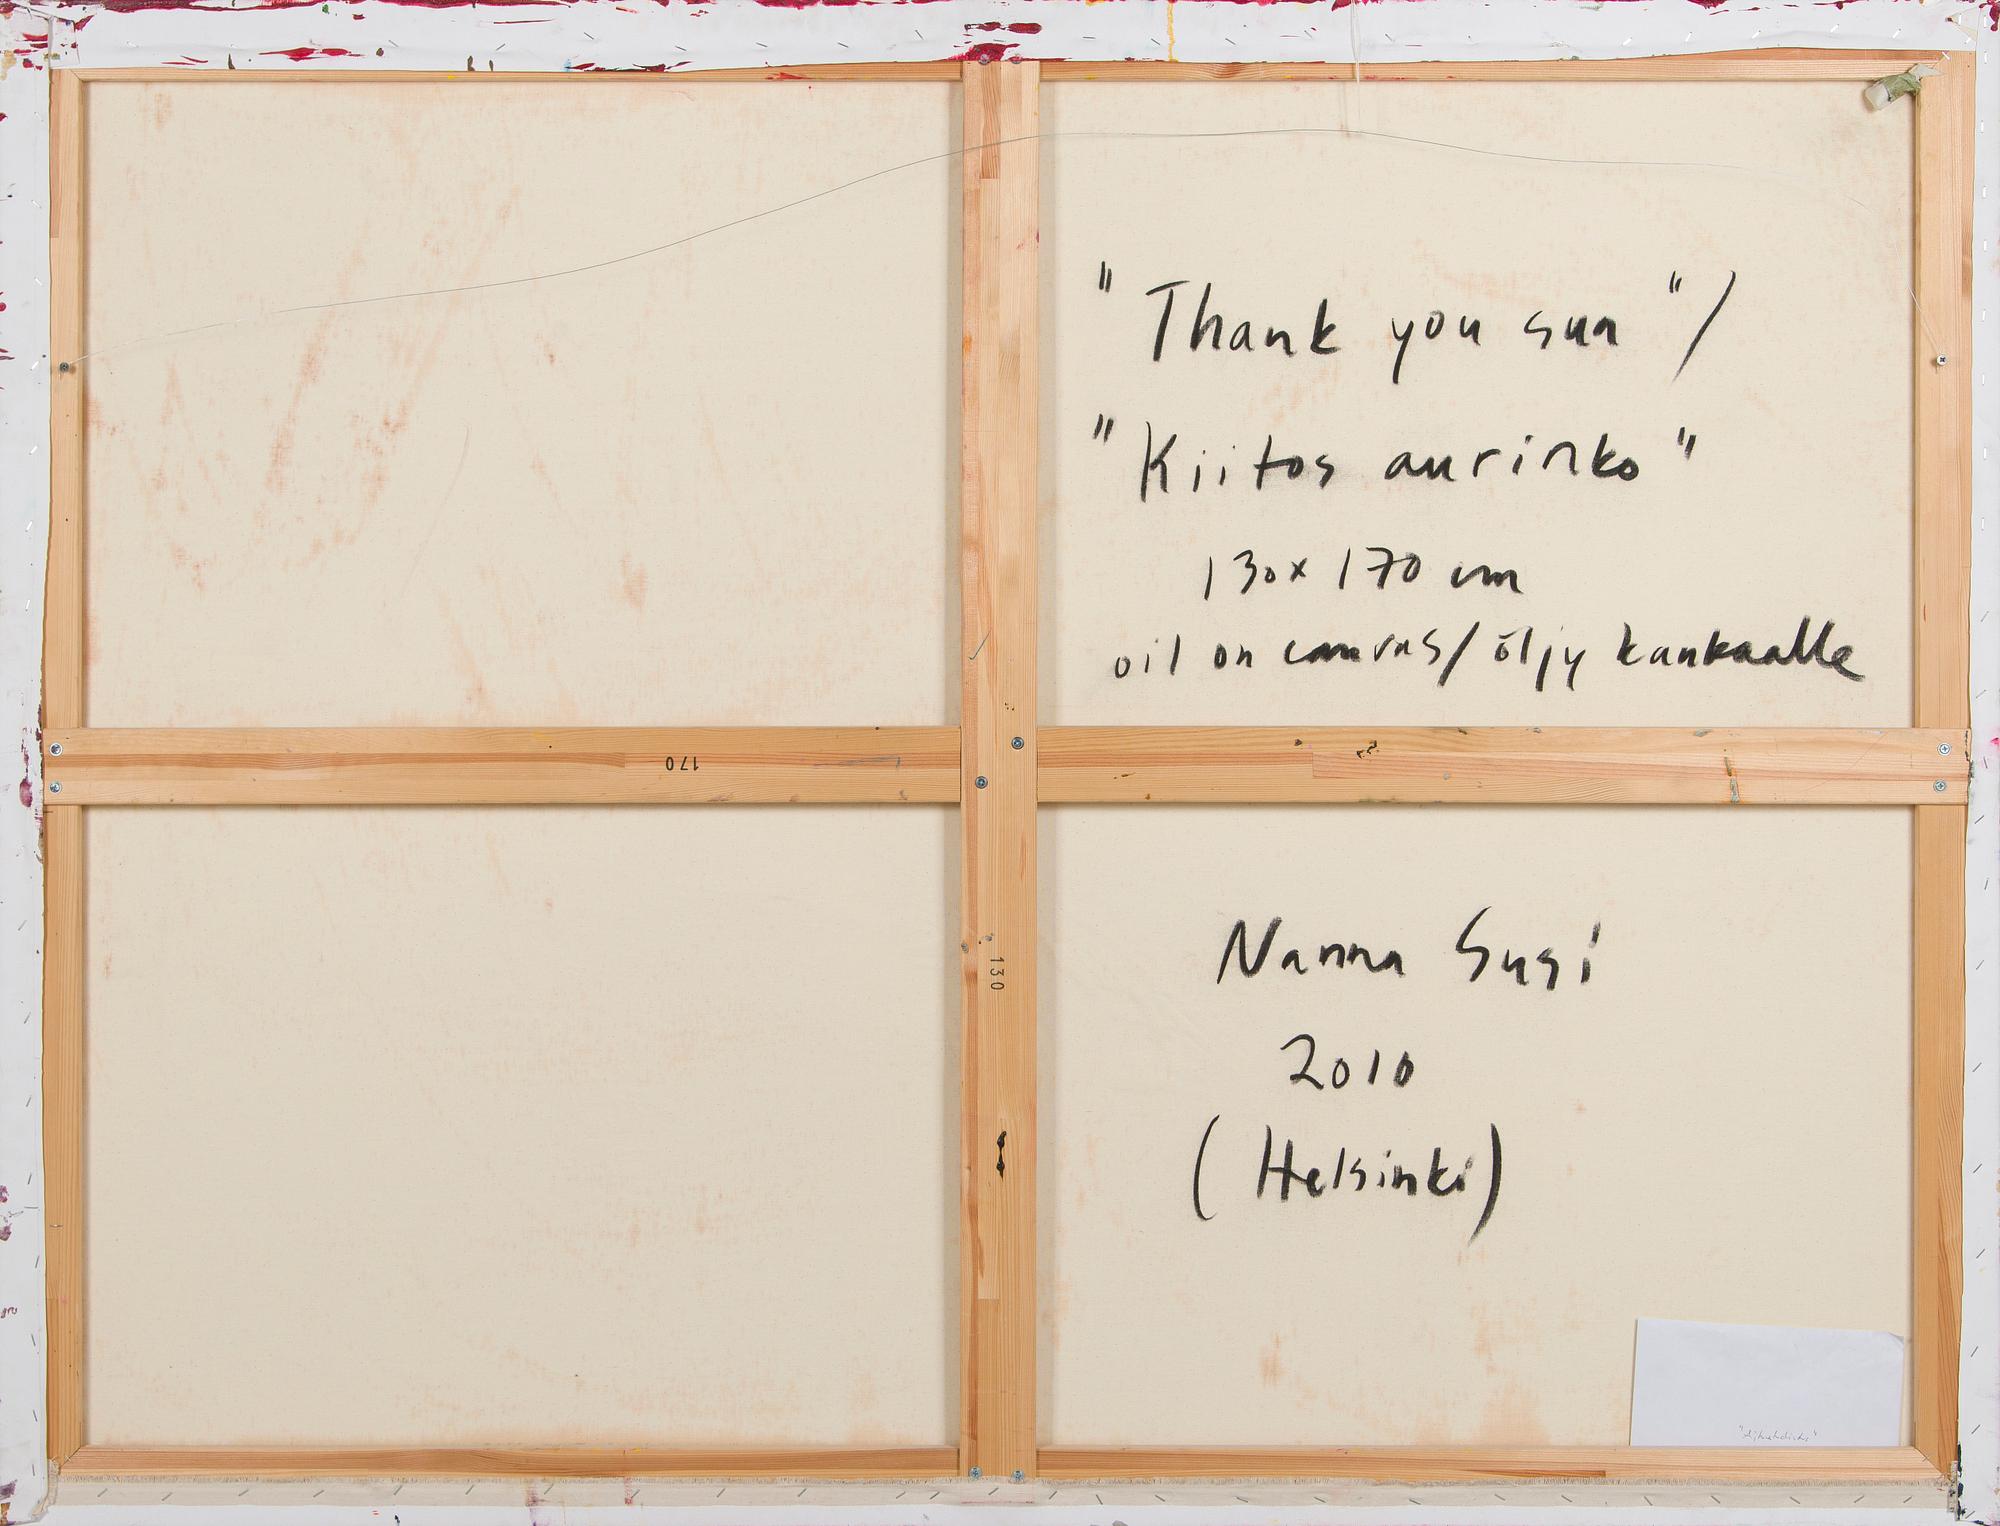 "Thank you sun"/
"Kiitos aurinko"
130x170 cm
oil on canvas/öljy kankaalle
170
130
Nanna Susi
2010
(Helsinki)